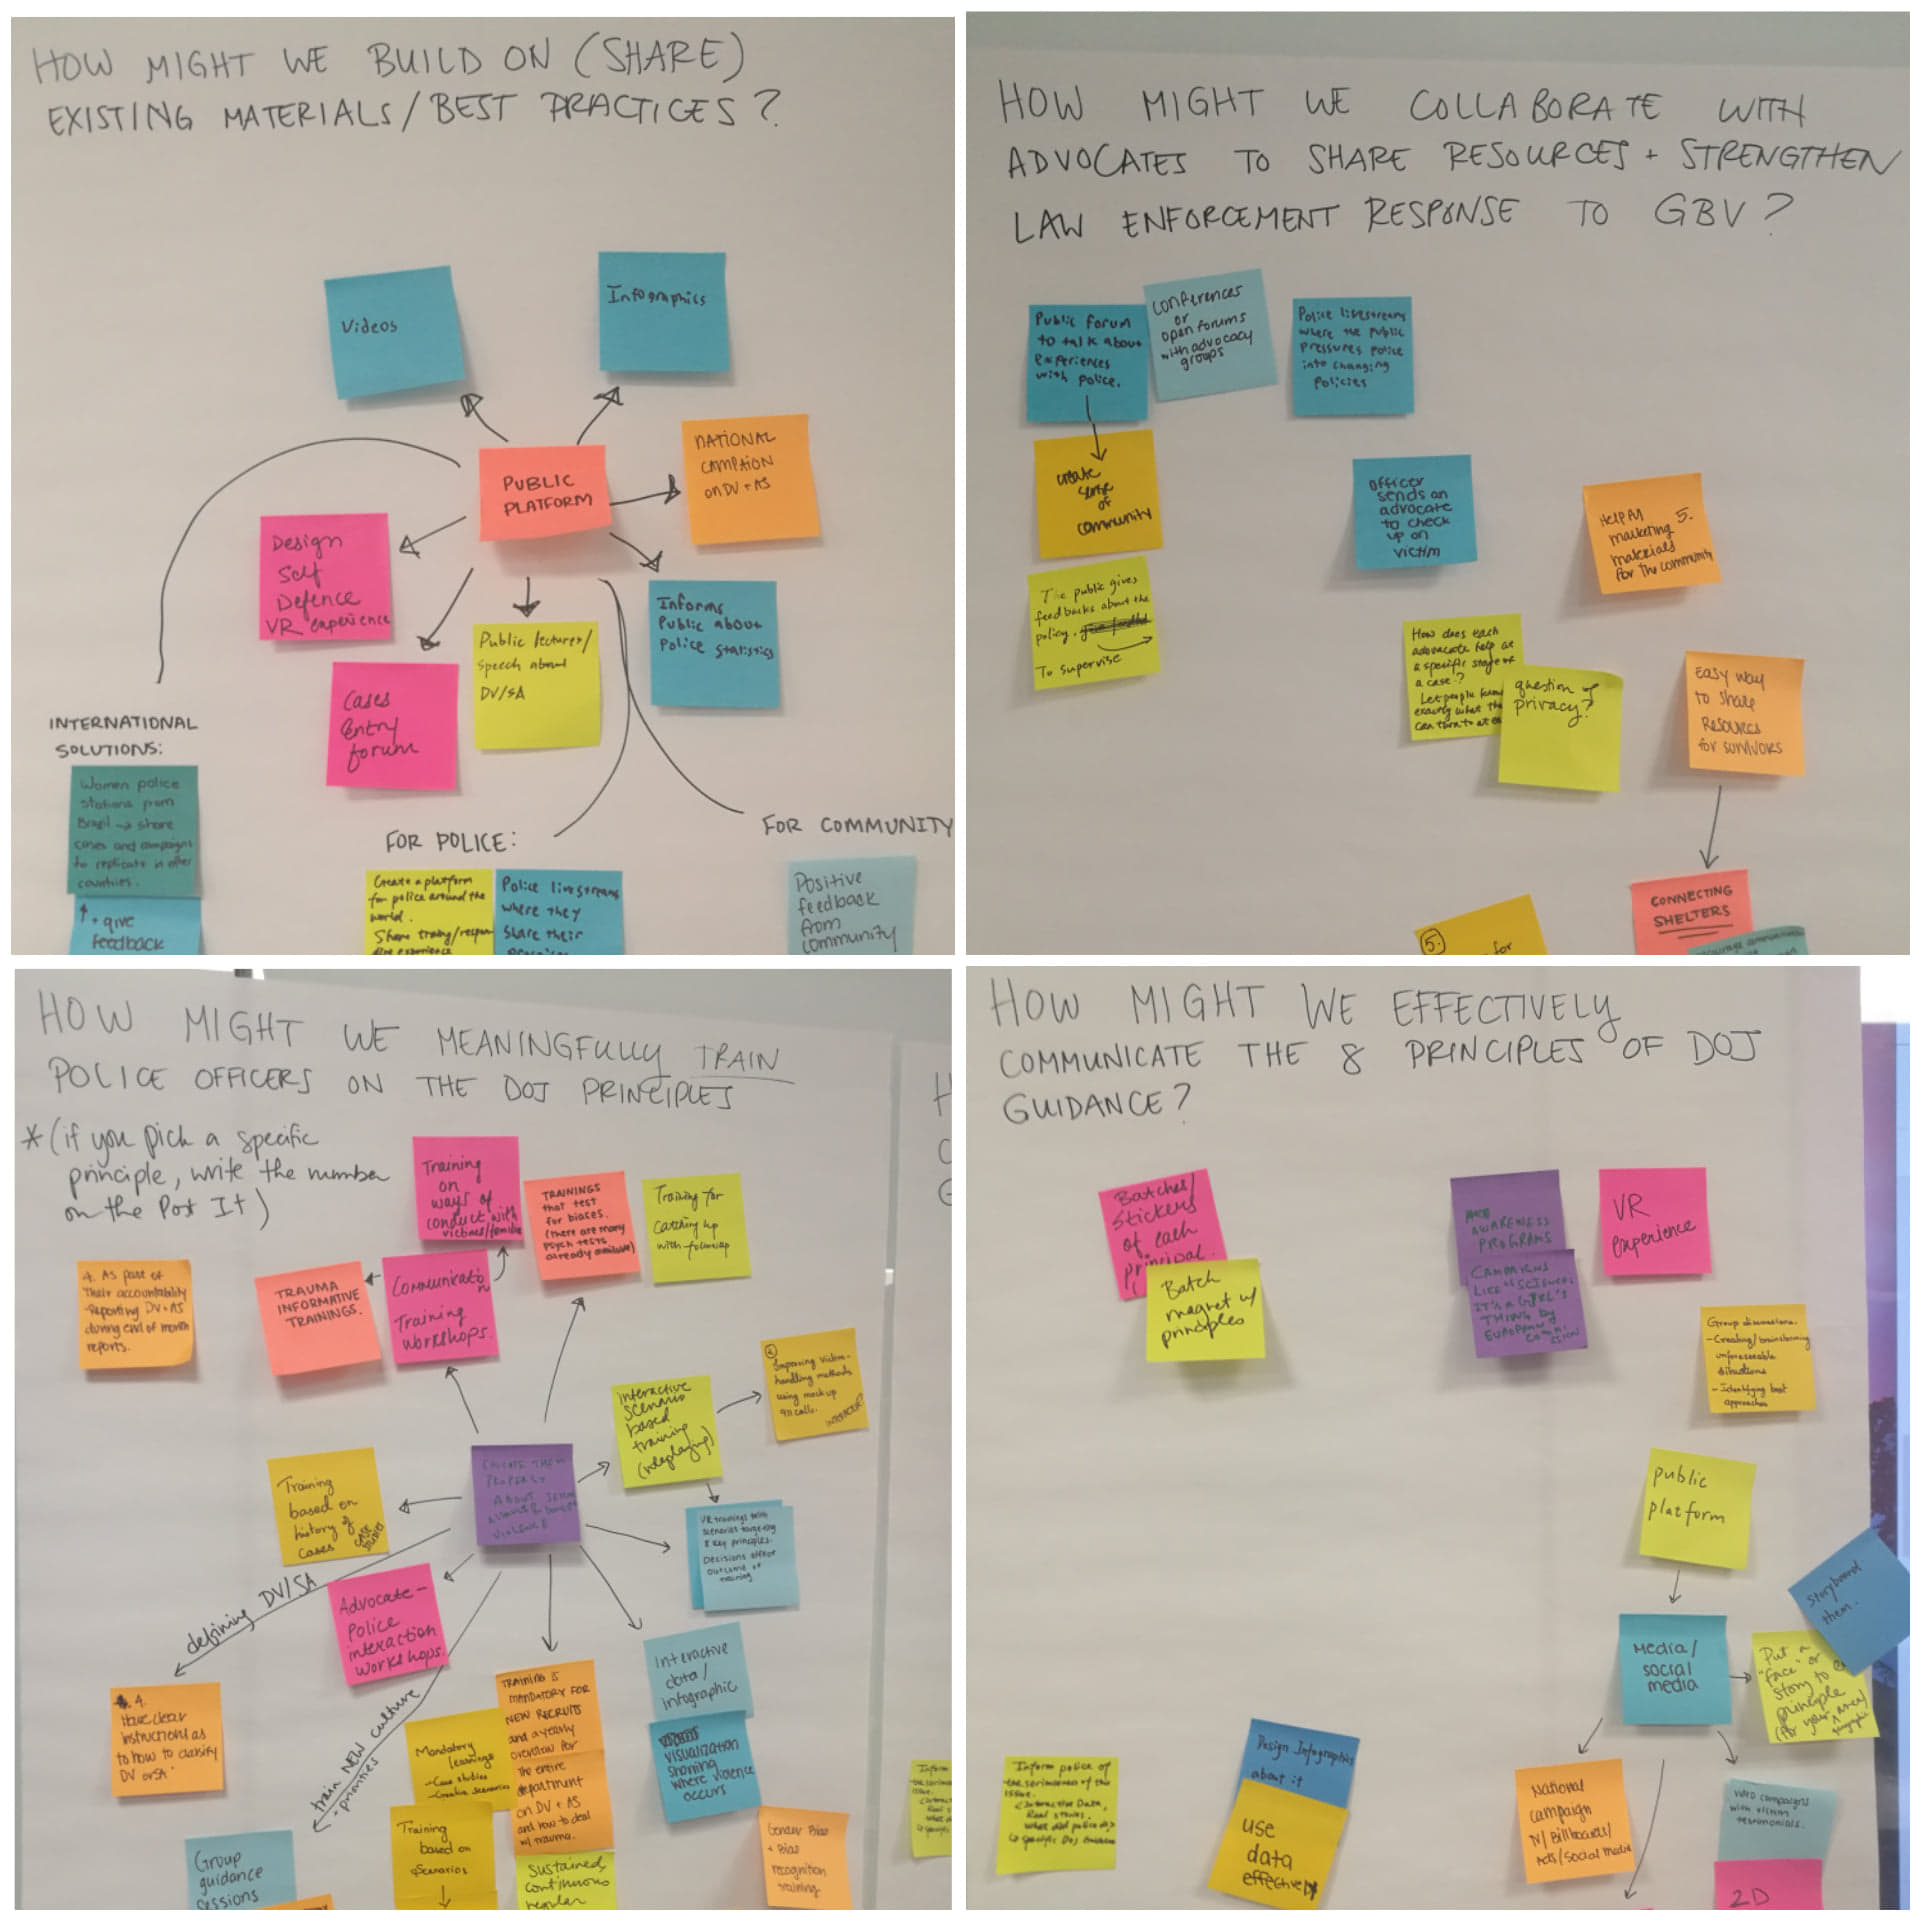 HOW MIGHT WE BUILD ON (SHARE)
EXISTING MATERIALS/BEST PRACTICES?
Videos
Infographics
PUBLIC
PLATFORM
NATIONAL
CAMPAION
ON DV + AS
Design
Self
Defence
VR experience
Cases
Entry
forum
Public lectures/
speech about
DV/SA
Informs
Public about
Police statistics
INTERNATIONAL
SOLUTIONS:
Women police
stations from
Brazil → share
cases and campaigns
to replicate in other
countries.
↑ • give
feedback
FOR POLICE:
Create a platform
for police around the
world.
Police livestreams
where they
share their
FOR COMMUNITY
Positive
feedback
from
community
HOW MIGHT WE COLLABORATE WITH
ADVOCATES TO SHARE RESOURCES + STRENGTHEN
LAW ENFORCEMENT RESPONSE TO GBV?
Public forum
to talk about
experiences
with police.
conferences
or
open forums
with advocacy
groups
Police livestreams
where the public
pressures police
into changing
policies
create
sense
of
community
The public gives
feedbacks about the
policy.
To supervise
Officer
sends an
advocate
to check
up on
victim
Help PD
marketing 5.
materials
for the community
How does each
advocate help at
a specific stage of
a case?
question of
privacy?
EASY way
to share
RESOURCES
for survivors
CONNECTING
SHELTERS
5.
for
HOW MIGHT WE MEANINGFULLY TRAIN
POLICE OFFICERS ON THE DOJ PRINCIPLES
*(if you pick a specific
principle, write the number
on the Post It)
Training
on
ways of
conduct with
victims/families
TRAININGS
that test
for biases.
(there are many
psych tests
already available)
Training for
catching up
with
4. As part of
their accountability
-Reporting DV + AS
during end of month
reports.
TRAUMA
INFORMATIVE
TRAININGS.
Communication
Training
workshops.
Interactive
scenario
based
training
(roleplaying)
Improving victim-
handling methods
using mock up
911 calls.
Training
based on
history of
cases
CASE
STUDIES
ABOUT
VIOLENCE
VR trainings with
scenarios targeting
8 key principles.
Decisions affect
outcome of
training
defining DV/SA
Advocate-
Police
interaction
workshops.
4.
Have clear
instructions as
to how to classify
DV or SA
train NEW culture
priorities
Interactive
data/
infographic
visualization
showing
where violence
occurs
Mandatory
learnings
-Case studies
-Creative scenarios
TRAINING IS
MANDATORY FOR
NEW RECRUITS
and a yearly
overview for
The entire
department
on DV + AS
and how to deal
w/ trauma.
Training
based on
scenarios
Group
guidance
sessions
Sustained,
continuous
regular
Gender Bias
+ Bias
recognition
training
Inform
HOW MIGHT WE EFFECTIVELY
COMMUNICATE THE 8 PRINCIPLES OF DOJ
GUIDANCE?
Batches/
Stickers
of each
principal.
Batch
magnet w/
principles
AWARENESS
PROGRAMS
CAMPAIGNS
LIKE "SCIENCE:
IT'S A GIRL'S
THING" by
EUROPEAN
VR
experience
Group discussions.
-Creating/brainstorming
unforeseeable
situations
-Identifying best
approaches
public
platform
storyboard
them.
Media/
social
media
Put a
"face" or
story to
principle
Inform police of
the seriousness of this
issue.
Design Infographics
about it
use
data
effectively
National
campaign
TV/Billboards/
Ads/social media
campaigns
with victim
testimonials.
2D